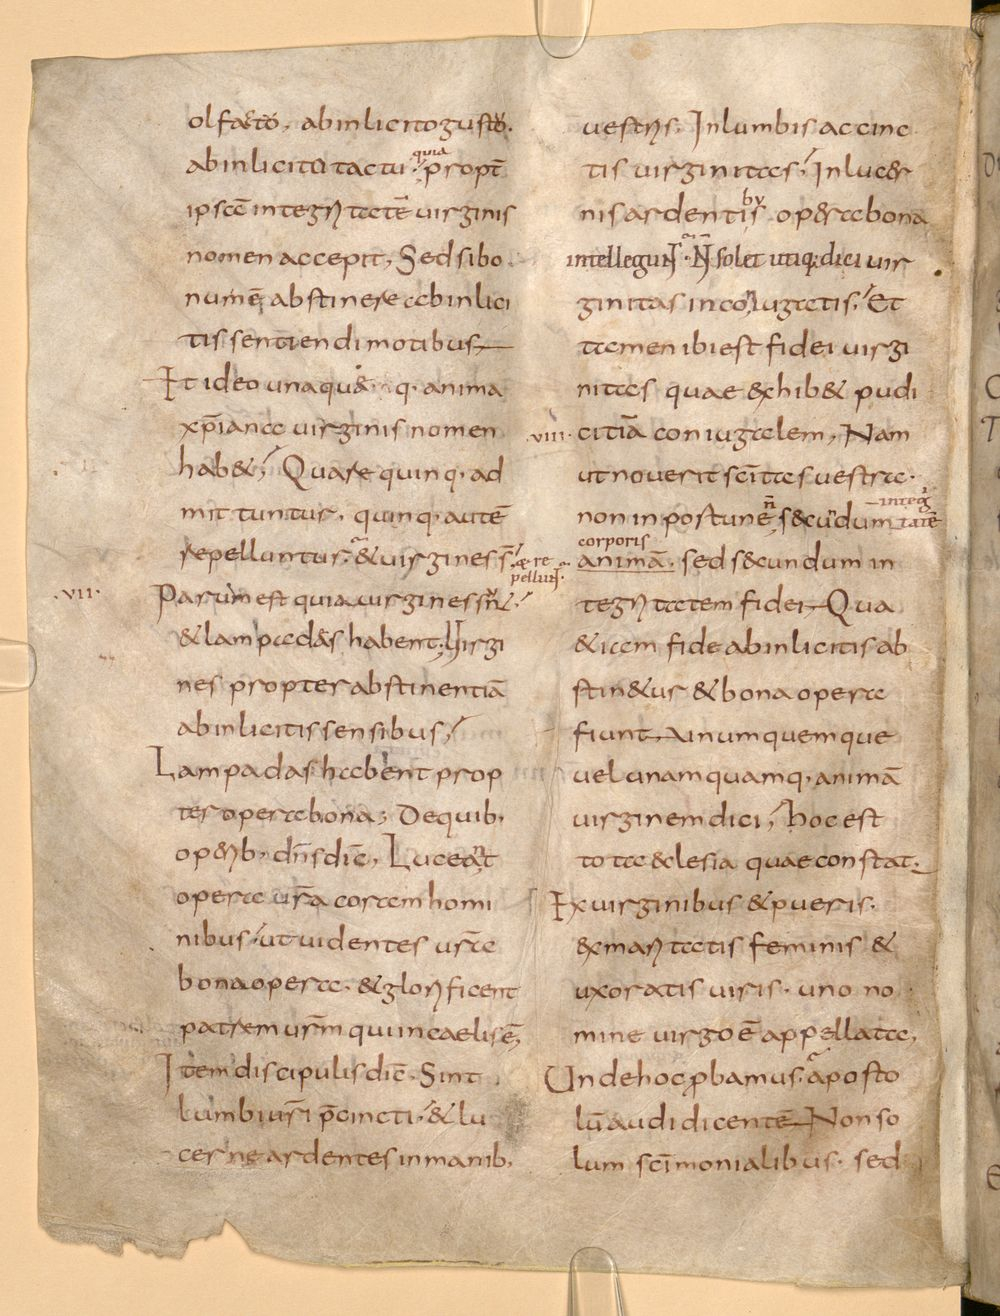 olfacto, abinlicitogusto.
abinlicito tactu. quia propt̄
ipsā integritatē virginis
nomen accepit, Sed si bo
num ē, abstinere abinlici
tis sentiendi motibus,
Et ideo unaquae q· anima
xp̄iana virginis nomen
hab&; Quare quinq· ad
mittuntur, quinq· autē
repelluntur. & uirgines s̄
& re
pellunt̄.
·VII· Parum est quia uirgines sn̄t.
& lampadas habent; Virgi
nes propter abstinentiā
abinlicitis sensibus;
Lampadas habent prop
ter opera bona; De quib,
operib, dn̄s dic̄, Luceant
opera ur̄a coram homi
nibus. ut uidentes ur̄a
bona opera. & glorificent
patrem ur̄m qui in caelis ē,
Item discipulis dic̄. Sint
lumbi ur̄i p̄cincti. & lu
cerne ardentes in manib,
uestris. In lumbis accinc
tis uirginitas. In luc&r
nis ardentibus opera bona
intellegunt̄. N̄ solet utiq; dici uir
ginitas in coniugatis. Et
tamen ibi est fidei uirgi
nitas quae exhib& pudi
·VIII· citiā coniugalem, Nam
ut nouerit sc̄itas uestra.
non inportune n̄ s&cūdum integ
ritatē
corporis
animā. sed s&cundum in
tegritatem fidei, Qua
&iam fide abinlicitis ab
stin&ur & bona opera
fiunt, unumquemque
uel unamquamq· animā
uirginem dici, hoc est
tota &clesia quae constat.
Ex uirginibus & pueris.
& maritatis feminis &
uxoratis uiris. uno no
mine uirgo ē appellata,
Unde hoc p̄bamus. aposto
lū audi dicentē. Non so
lum sc̄imonialibus. sed